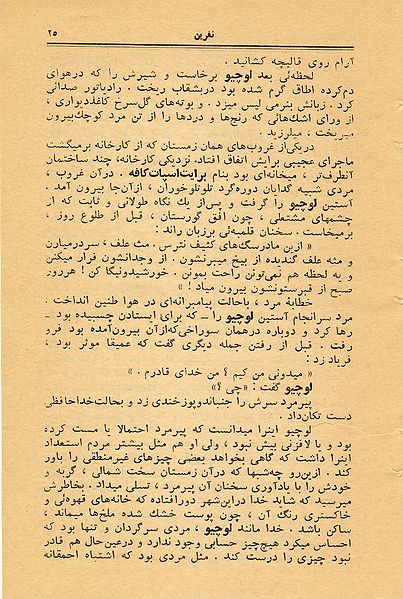 نفرین ۲۵
آرام روی قالیچه کشانید .
لحظه‌ئی بعد لوچیو برخاست و شیرش را که درهوای
دم‌کرده اطاق گرم شده بود دربشقاب ریخت . رادیاتور صدائی
کرد. زبانش بنرمی لیس میزد . و بوته‌های گل‌سرخ کاغذدیواری ،
از ورای اشك‌هائی که رنج‌ها و دردها را از تن مرد کوچك‌بیرون
میریخت ، میلرزید .
دریکی‌از غروب‌های همان زمستان که از کارخانه برمیگشت
ماجرای عجیبی برایش اتفاق افتاد. نزدیکی کارخانه، چند ساختمان
آنطرف‌تر ، میخانه‌ای بود بنام برایت‌اسپات‌کافه . درآن غروب ،
مردی شبیه گدایان دوره‌گرد تلوتلوخوران ، ازآن‌جا بیرون آمد .
آستین لوچیو را گرفت و پس‌از یك نگاه طولانی و ثابت که از
چشمهای مشتعلی ، چون افق گورستان ، قبل از طلوع روز ،
برمیخاست . سخنان قلمبه‌ئی برزبان راند :
« ازین مادرسگ‌های کثیف نترس . مث علف ، سردرمیارن
و مثه علف گندیده از بیخ میبرنشون . از وجدانشون فرار میکنن
و یه لحظه هم نمی‌تونن راحت بمونن . خورشیدونیگا کن ! هرروز
صبح از قبرستونشون بیرون میاد ! »
خطابهٔ مرد ، باحالت پیامبرانه‌ای در هوا طنین انداخت .
مرد سرانجام آستین لوچیو را ـ که برای ایستادن چسبیده بود ـ
رها کرد و دوباره درهمان سوراخی‌که‌ازآن بیرون‌آمده بود فرو
رفت . قبل از رفتن جمله دیگری گفت که عمیقا موثر بود ،
فریاد زد :
« میدونی من کیم ؟ من خدای قادرم . »
لوچیو گفت : «چی ؟»
پیرمرد سرش را جنباندوپوزخندی زد و بحالت‌خداحافظی
دست تکان‌داد .
لوچیو اینرا میدانست که پیرمرد احتمالا یا مست کرده
بود و یا لافزنی بیش نبود ، ولی او هم مثل بیشتر مردم استعداد
اینرا داشت که گاهی بخواهد بعضی چیزهای غیرمنطقی را باور
کند . ازین‌رو چه‌شبها که درآن زمستان سخت شمالی ، گربه و
خودش را با یادآوری سخنان آن پیرمرد ، تسلی میداد . بخاطرش
میرسید که شاید خدا دراین‌شهر دورافتاده که خانه‌های قهوه‌ئی و
خاکستری رنگ آن ، چون پوست خشك شده ملخ‌ها میماند ،
ساکن باشد . خدا مانند لوچیو ، مردی سرگردان و تنها بود که
احساس میکرد هیچ‌چیز حسابی وجود ندارد و درعین‌حال هم قادر
نبود چیزی را درست کند . مثل مردی بود که اشتباه احمقانه